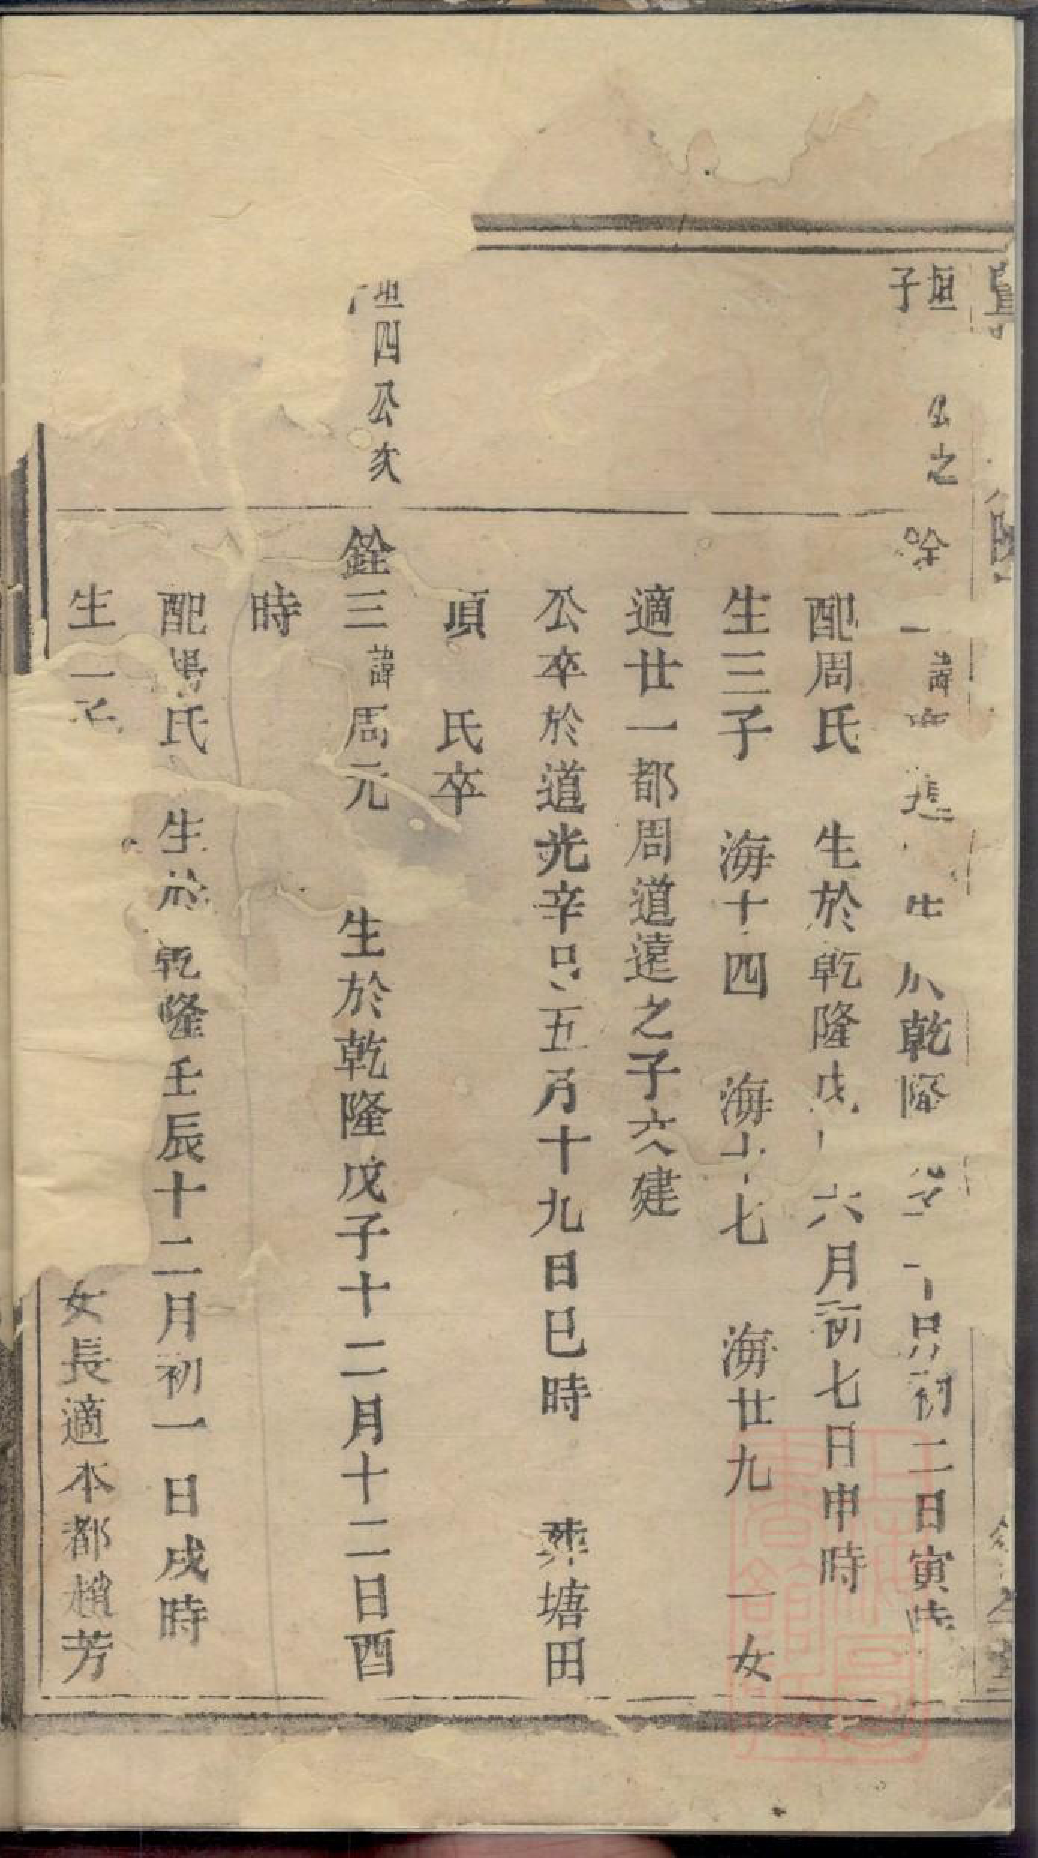 垣 公之
子
一諱 進 生於乾隆 十月初二日寅時
配周氏 生於乾隆戊 六月初七日申時
生三子 海十四 海十七 海廿九 一女
適廿一都周道遠之子文建
公卒於道光辛 五月十九日巳時 葬塘田
項 氏卒
垣四公次
子
銓三諱周元 生於乾隆戊子十二月十二日酉
時
配楊氏 生於乾隆壬辰十二月初一日戌時
生一子 女長適本都趙芳